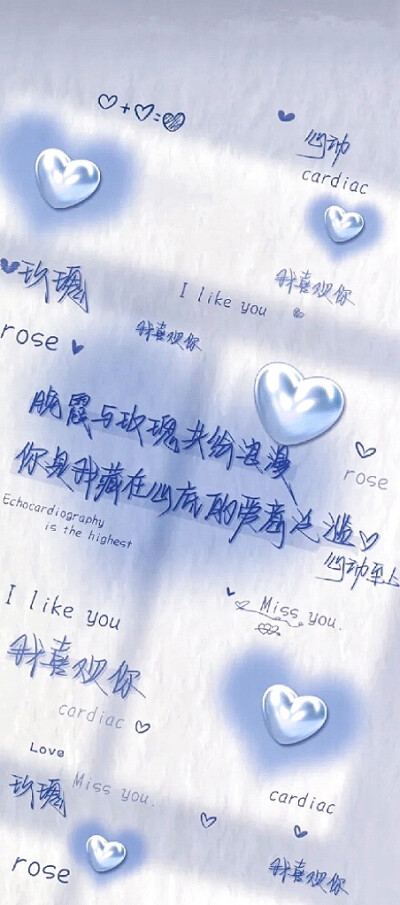 心动
cardiac
我喜欢你
玫瑰
I like you
我喜欢你
rose
晚霞与玫瑰共纷浪漫
rose
你是我藏在心底的爱意泛滥
Echocardiography
is the highest
心动至上
I like you
Miss you.
我喜欢你
cardiac
Love
玫瑰
Miss you.
cardiac
rose
我喜欢你